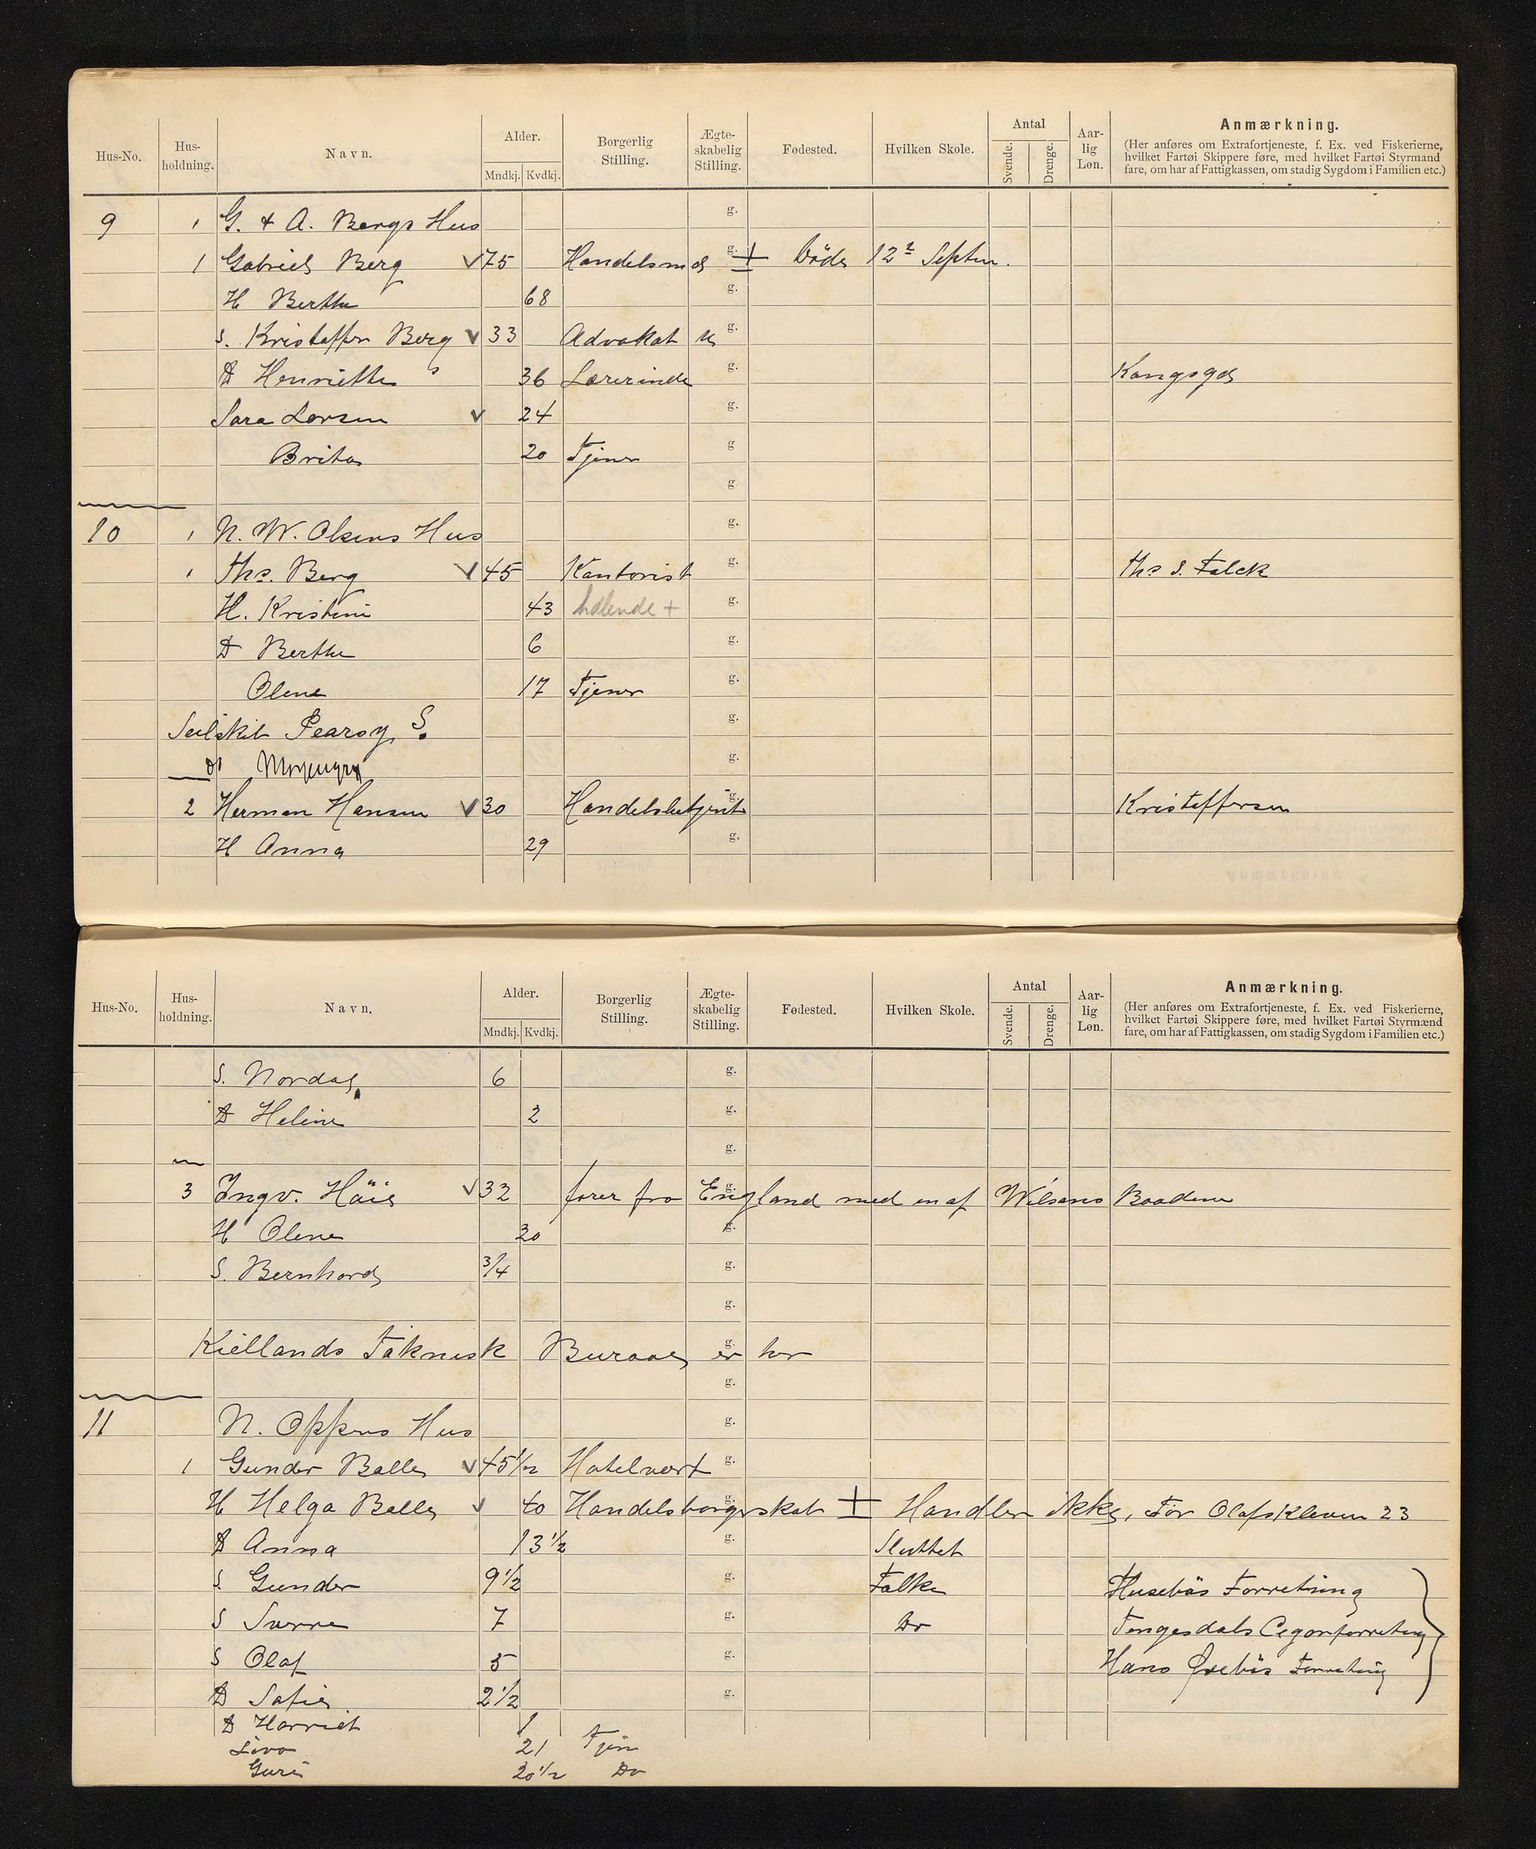 Hus-No. Hus-holdning. Navn. Alder. Mndkj. Kvdkj. Borgerlig Stilling. Ægte-skabelig Stilling. Fødested. Hvilken Skole. Antal Svende. Drenge. Aar-lig Løn. Anmærkning.
(Her anføres om Extrafortjeneste, f. Ex. ved Fiskerierne, hvilket Fartøi Skippere føre, med hvilket Fartøi Styrmand fare, om har af Fattigkassen, om stadig Sygdom i Familien etc.)
9 1 G. & A. Bergs Hus g.
1 Gabriel Berg √ 75 Handelsmd g. ± Døde 12 Septem.
H Berthe 68 g.
S. Kristoffer Berg √ 33 Advokat u g.
D Henriette 36 Lærerinde g. Kongsgd
Sara Larsen √ 24 g.
Brita 20 Tjener g
g.
10 1 N. W. Olsens Hus g.
1 Ths. Berg √ 45 Kontorist g. Ths S. Falck
H. Kristine 43 g.
D Berthe 6 g.
Olene 17 Tjener g.
Seilskib S. g.
do g.
2 Herman Hansen √ 30 Handelsbetjent g. Kristoffersen
H Anna 29 g.
Hus-No. Hus-holdning. Navn. Alder. Mndkj. Kvdkj. Borgerlig Stilling. Ægte-skabelig Stilling. Fødested. Hvilken Skole. Antal Svende. Drenge. Aar-lig Løn. Anmærkning.
(Her anføres om Extrafortjeneste, f. Ex. ved Fiskerierne, hvilket Fartøi Skippere føre, med hvilket Fartøi Styrmænd fare, om har af Fattigkassen, om stadig Sygdom i Familien etc.)
S. Nordal 6 g.
D Heline 2 g.
g.
3 Ingv. Höie √ 32 farer fra England med en af Wilsons Baadene g.
H Olene 30 g.
S. Bernhard 3/4 g.
g.
Kiellands Teknisk Bureau er her g.
g.
11 N. Oppens Hus g.
1 Gunder Balle √ 45 1/2 Hotelvert g.
H Helga Balle √ 40 Handelsborgerskab g. ± Handler ikke, Før Olafskleven 23
D Anna 13 1/2 g. Sluttet
S. Gunder 9 1/2 g. Falke Husebøs Forretning
S Sverre 7 g. Do Tengesdals Cigarforretning
S Olaf 5 g. Hans Øvebøs Forretning
D Sofie 2 1/2 g.
D Harriet 1
Lova 21 Tjen
Guri 20 1/2 Do